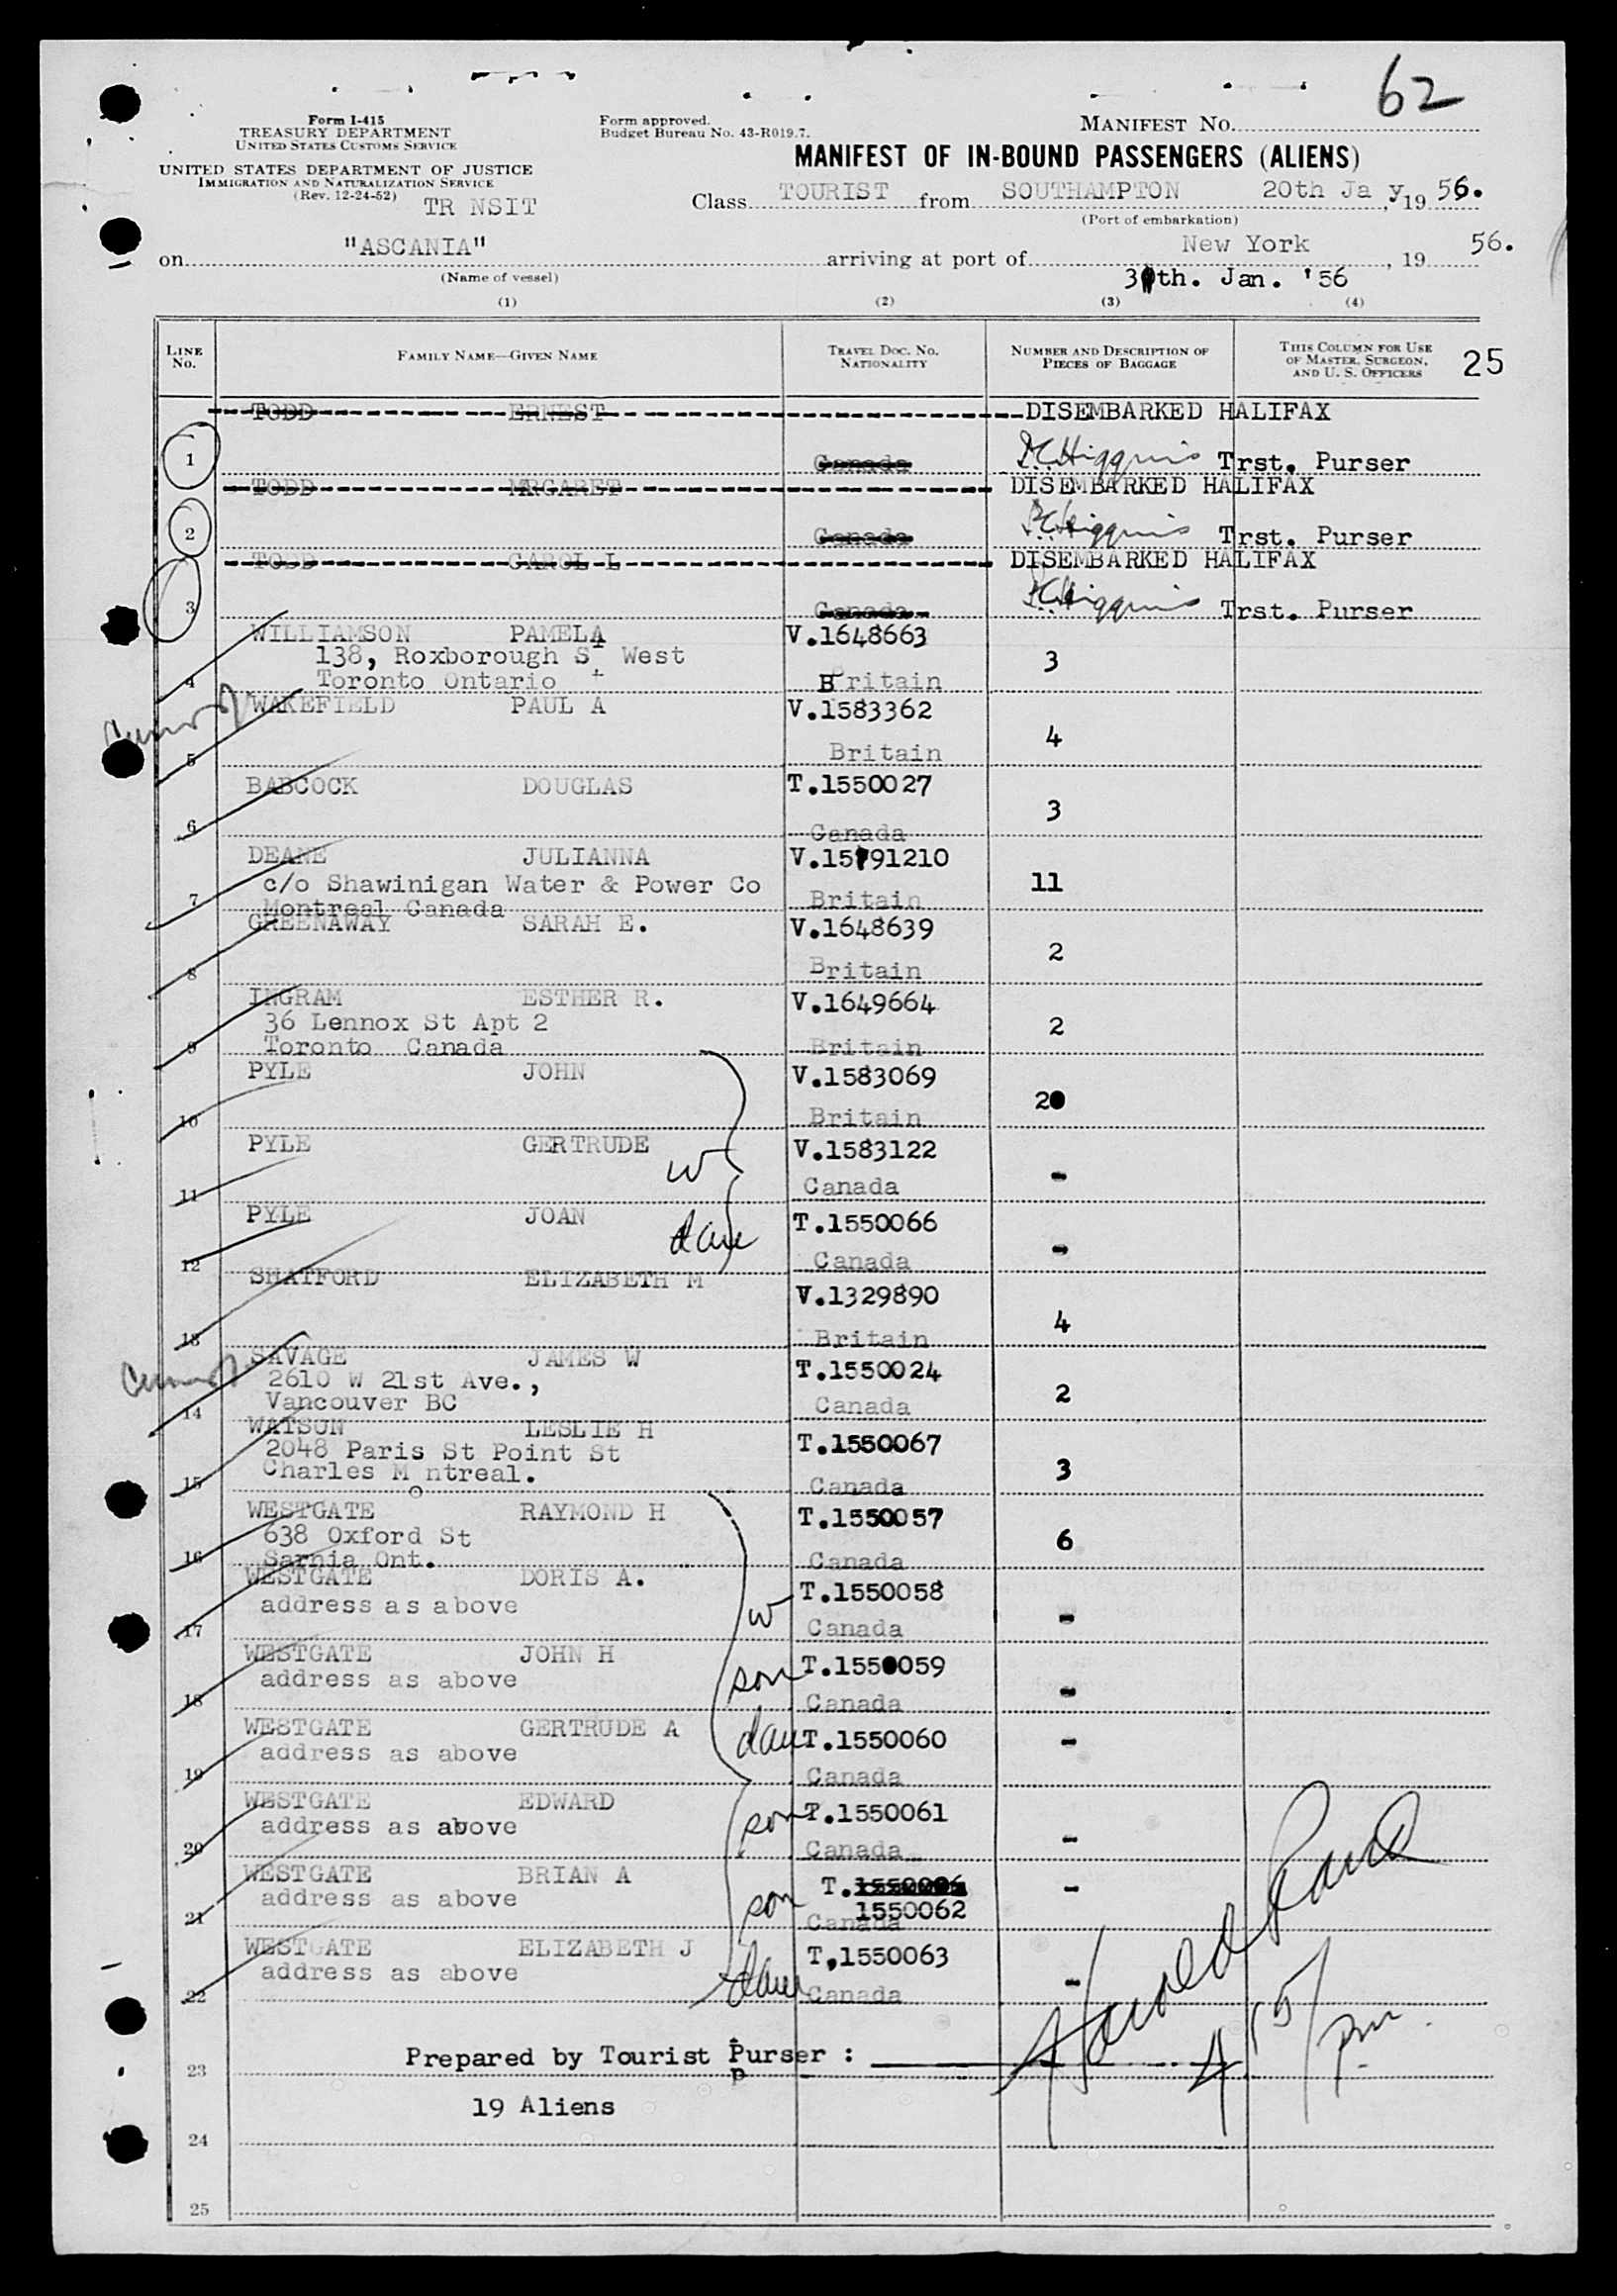 62
Form I-415
TREASURY DEPARTMENT
UNITED STATES CUSTOMS SERVICE
Form approved.
Budget Bureau No. 43-R019.7.
MANIFEST NO.
UNITED STATES DEPARTMENT OF JUSTICE
IMMIGRATION AND NATURALIZATION SERVICE
(Rev. 12-24-52)
MANIFEST OF IN-BOUND PASSENGERS (ALIENS)
TR NSIT
Class TOURIST from SOUTHAMPTON 20th Ja y, 19 56.
(Port of embarkation)
on "ASCANIA" arriving at port of New York, 19 56.
(Name of vessel)
th. Jan. '56
(1) (2) (3) (4)
LINE NO. FAMILY NAME—GIVEN NAME TRAVEL DOC. NO. NATIONALITY NUMBER AND DESCRIPTION OF PIECES OF BAGGAGE THIS COLUMN FOR USE OF MASTER, SURGEON, AND U. S. OFFICERS 25
TODD ERNEST DISEMBARKED HALIFAX
1 Canada Higgins Trst. Purser
TODD MRGARET DISEMBARKED HALIFAX
2 Canada Higgins Trst. Purser
TODD CAROL L DISEMBARKED HALIFAX
3 Canada Higgins Trst. Purser
WILLIAMSON PAMELA V.1648663
138, Roxborough St West 3
4 Toronto Ontario Britain
WAKEFIELD PAUL A V.1583362
4
5 Britain
BABCOCK DOUGLAS T.1550027
3
6 Canada
DEANE JULIANNA V.15791210
c/o Shawinigan Water & Power Co 11
7 Montreal Canada Britain
GREENAWAY SARAH E. V.1648639
2
8 Britain
INGRAM ESTHER R. V.1649664
36 Lennox St Apt 2 2
9 Toronto Canada Britain
PYLE JOHN V.1583069
20
10 Britain
PYLE GERTRUDE V.1583122
w -
11 Canada
PYLE JOAN T.1550066
dau -
12 Canada
SHATFORD ELIZABETH M V.1329890
4
13 Britain
SAVAGE JAMES W T.1550024
2610 W 21st Ave., 2
14 Vancouver BC Canada
WATSON LESLIE H T.1550067
2048 Paris St Point St 3
15 Charles M ntreal. Canada
o
WESTGATE RAYMOND H T.1550057
638 Oxford St 6
16 Sarnia Ont. Canada
WESTGATE DORIS A. T.1550058
address as above w -
17 Canada
WESTGATE JOHN H T.1550059
address as above son -
18 Canada
WESTGATE GERTRUDE A dau T.1550060
address as above -
19 Canada
WESTGATE EDWARD son T.1550061
address as above -
20 Canada
WESTGATE BRIAN A T.
address as above son 1550062 -
21 Canada
WESTGATE ELIZABETH J T,1550063
address as above dau -
22 Canada
Prepared by Tourist Purser :
p
Harold
4 15/pm
23
19 Aliens
24
25